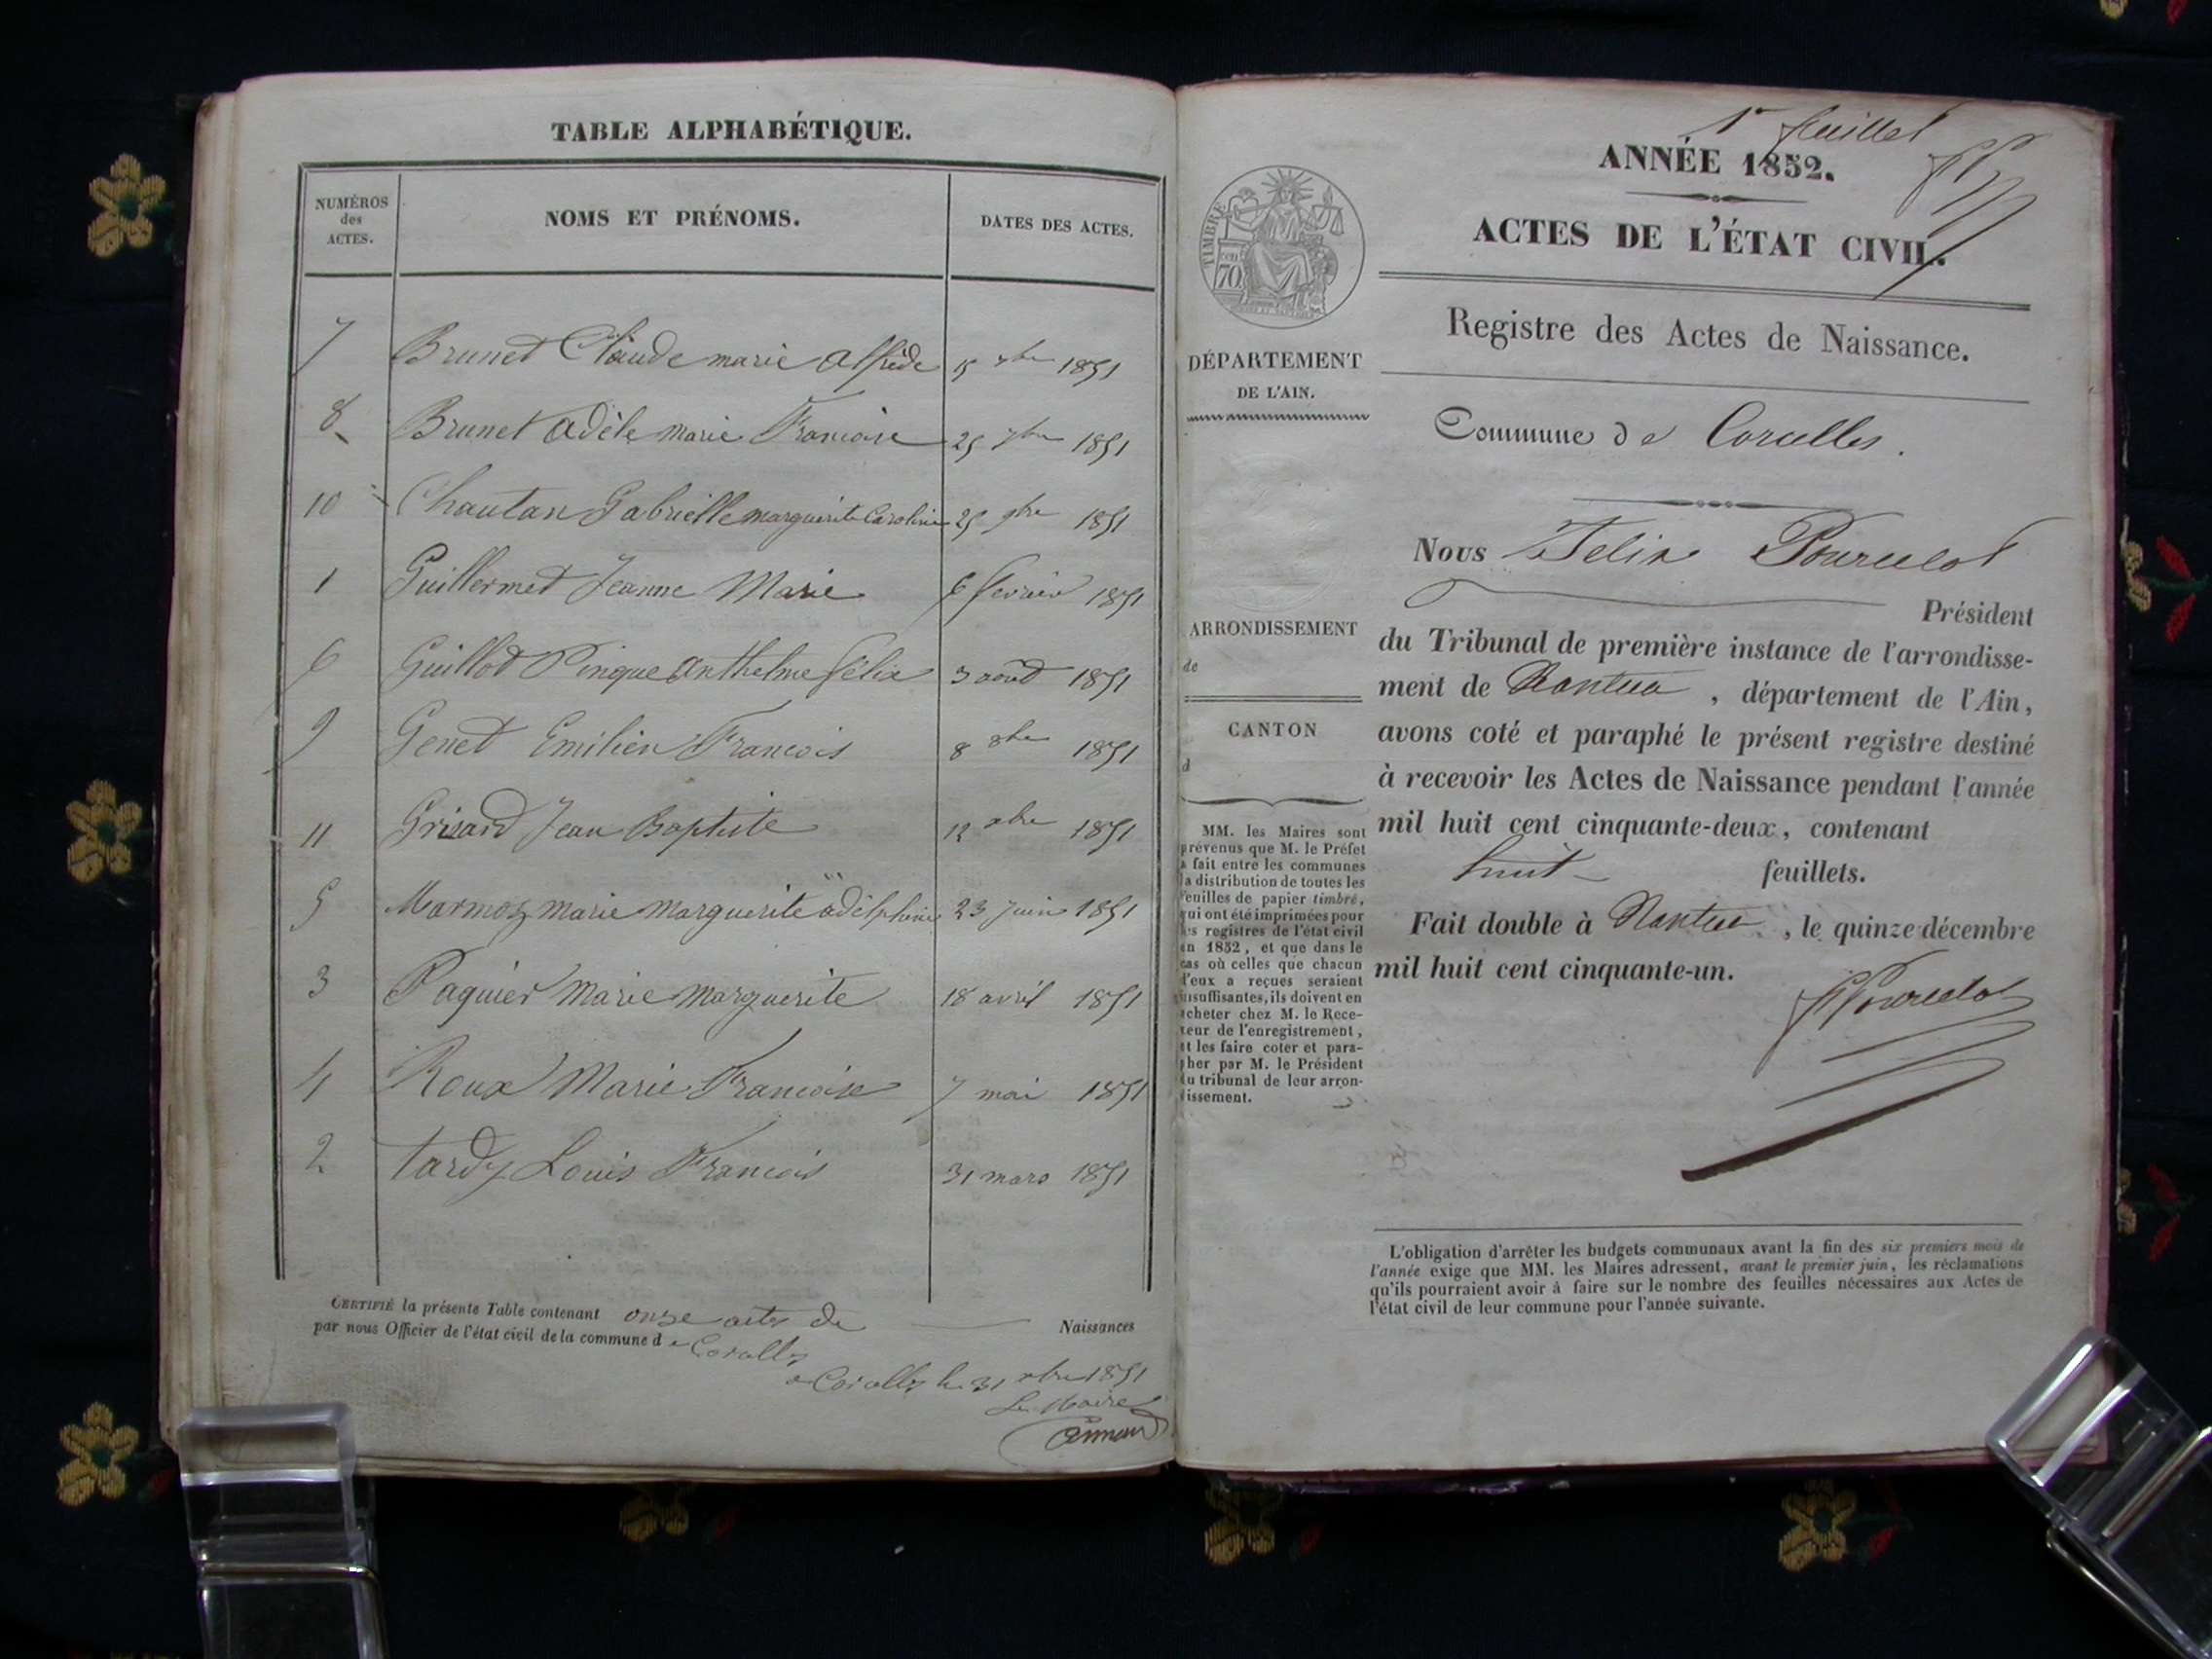 TABLE ALPHABÉTIQUE.
NUMÉROS des ACTES. NOMS ET PRÉNOMS. DATES DES ACTES.
7 Brunet Claude marie alfrède 15 7bre 1851
8 Brunet adèle marie Francoise 25 7bre 1851
10 Chautan Gabrielle marguerite Caroline 25 9bre 1851
1 Guillermet Jeanne Marie 6 fevrier 1851
6 Guillot Pingue anthelme félix 3 août 1851
9 Genet Emilien Francois 8 8bre 1851
11 Grisard Jean Baptiste 12 xbre 1851
5 Marmoz marie marguerite adèlphine 23 juin 1851
3 Paquier Marie marguerite 18 avril 1851
4 Roux Marie Francoise 7 mai 1851
2 tardy Louis Francois 31 mars 1851
CERTIFIÉ la présente Table contenant onze actes de Naissances
par nous Officier de l'état civil de la commune de Corcelles
à Corcelles le 31 xbre 1851
Le Maire
1er feuillet
ANNÉE 1852.
ACTES DE L'ÉTAT CIVIL.
Registre des Actes de Naissance.
TIMBRE
70
DÉPARTEMENT
DE L'AIN.
Commune de Corcelles.
Nous Felix Pourcelot
Président
du Tribunal de première instance de l'arrondisse-
ment de Nantua, département de l'Ain,
avons coté et paraphé le présent registre destiné
à recevoir les Actes de Naissance pendant l'année
mil huit cent cinquante-deux, contenant
huit feuillets.
Fait double à Nantua, le quinze décembre
mil huit cent cinquante-un.
Pourcelot
ARRONDISSEMENT
de
CANTON
d
MM. les Maires sont
prévenus que M. le Préfet
a fait entre les communes
la distribution de toutes les
feuilles de papier timbré,
qui ont été imprimées pour
les registres de l'état civil
en 1852, et que dans le
cas où celles que chacun
d'eux a reçues seraient
insuffisantes, ils doivent en
acheter chez M. le Rece-
veur de l'enregistrement,
et les faire coter et para-
pher par M. le Président
du tribunal de leur arron-
dissement.
L'obligation d'arrêter les budgets communaux avant la fin des six premiers mois de
l'année exige que MM. les Maires adressent, avant le premier juin, les réclamations
qu'ils pourraient avoir à faire sur le nombre des feuilles nécessaires aux Actes de
l'état civil de leur commune pour l'année suivante.